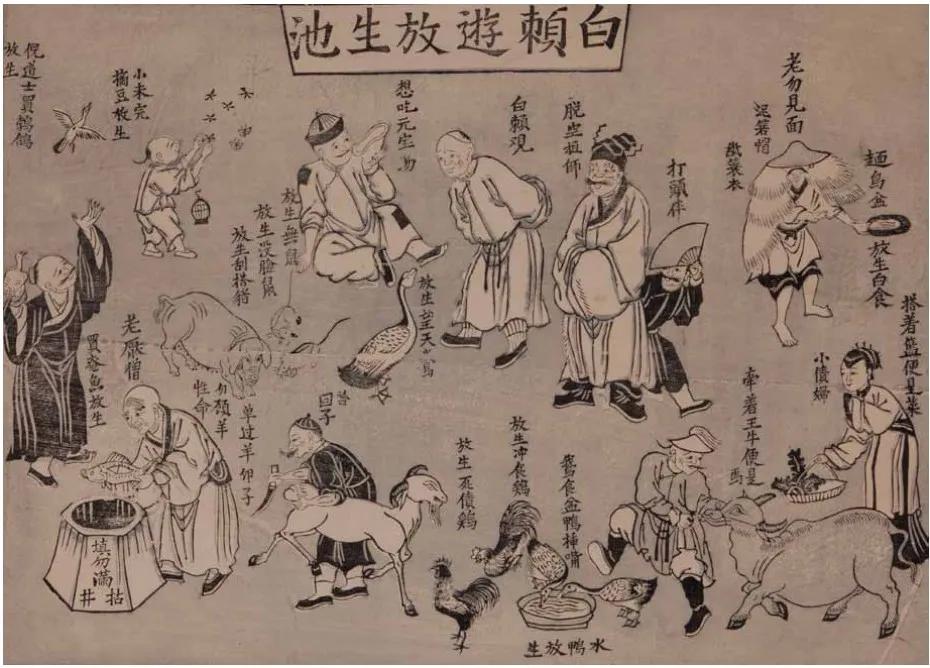 白頼遊放生池
老勿見面
泥箬帽
散蓑衣
麵烏盆
放生白食
搭着籃便是菜
小債婦
牽着王牛便是馬
打頭伴
脱空祖師
白賴观
想吃元宝
放生無鼠
放生没臉鼠
放生刮搭猪
放生望天
小未完
摘豆放生
倪道士買鵓鴿
放生
老厭僧
買發魚放生
勿顧羊
性命
单过羊卵子
回子
放生死債鷄
放生冲食鷄
食盆鴨揷嘴
水鴨放生
填勿满
枯井